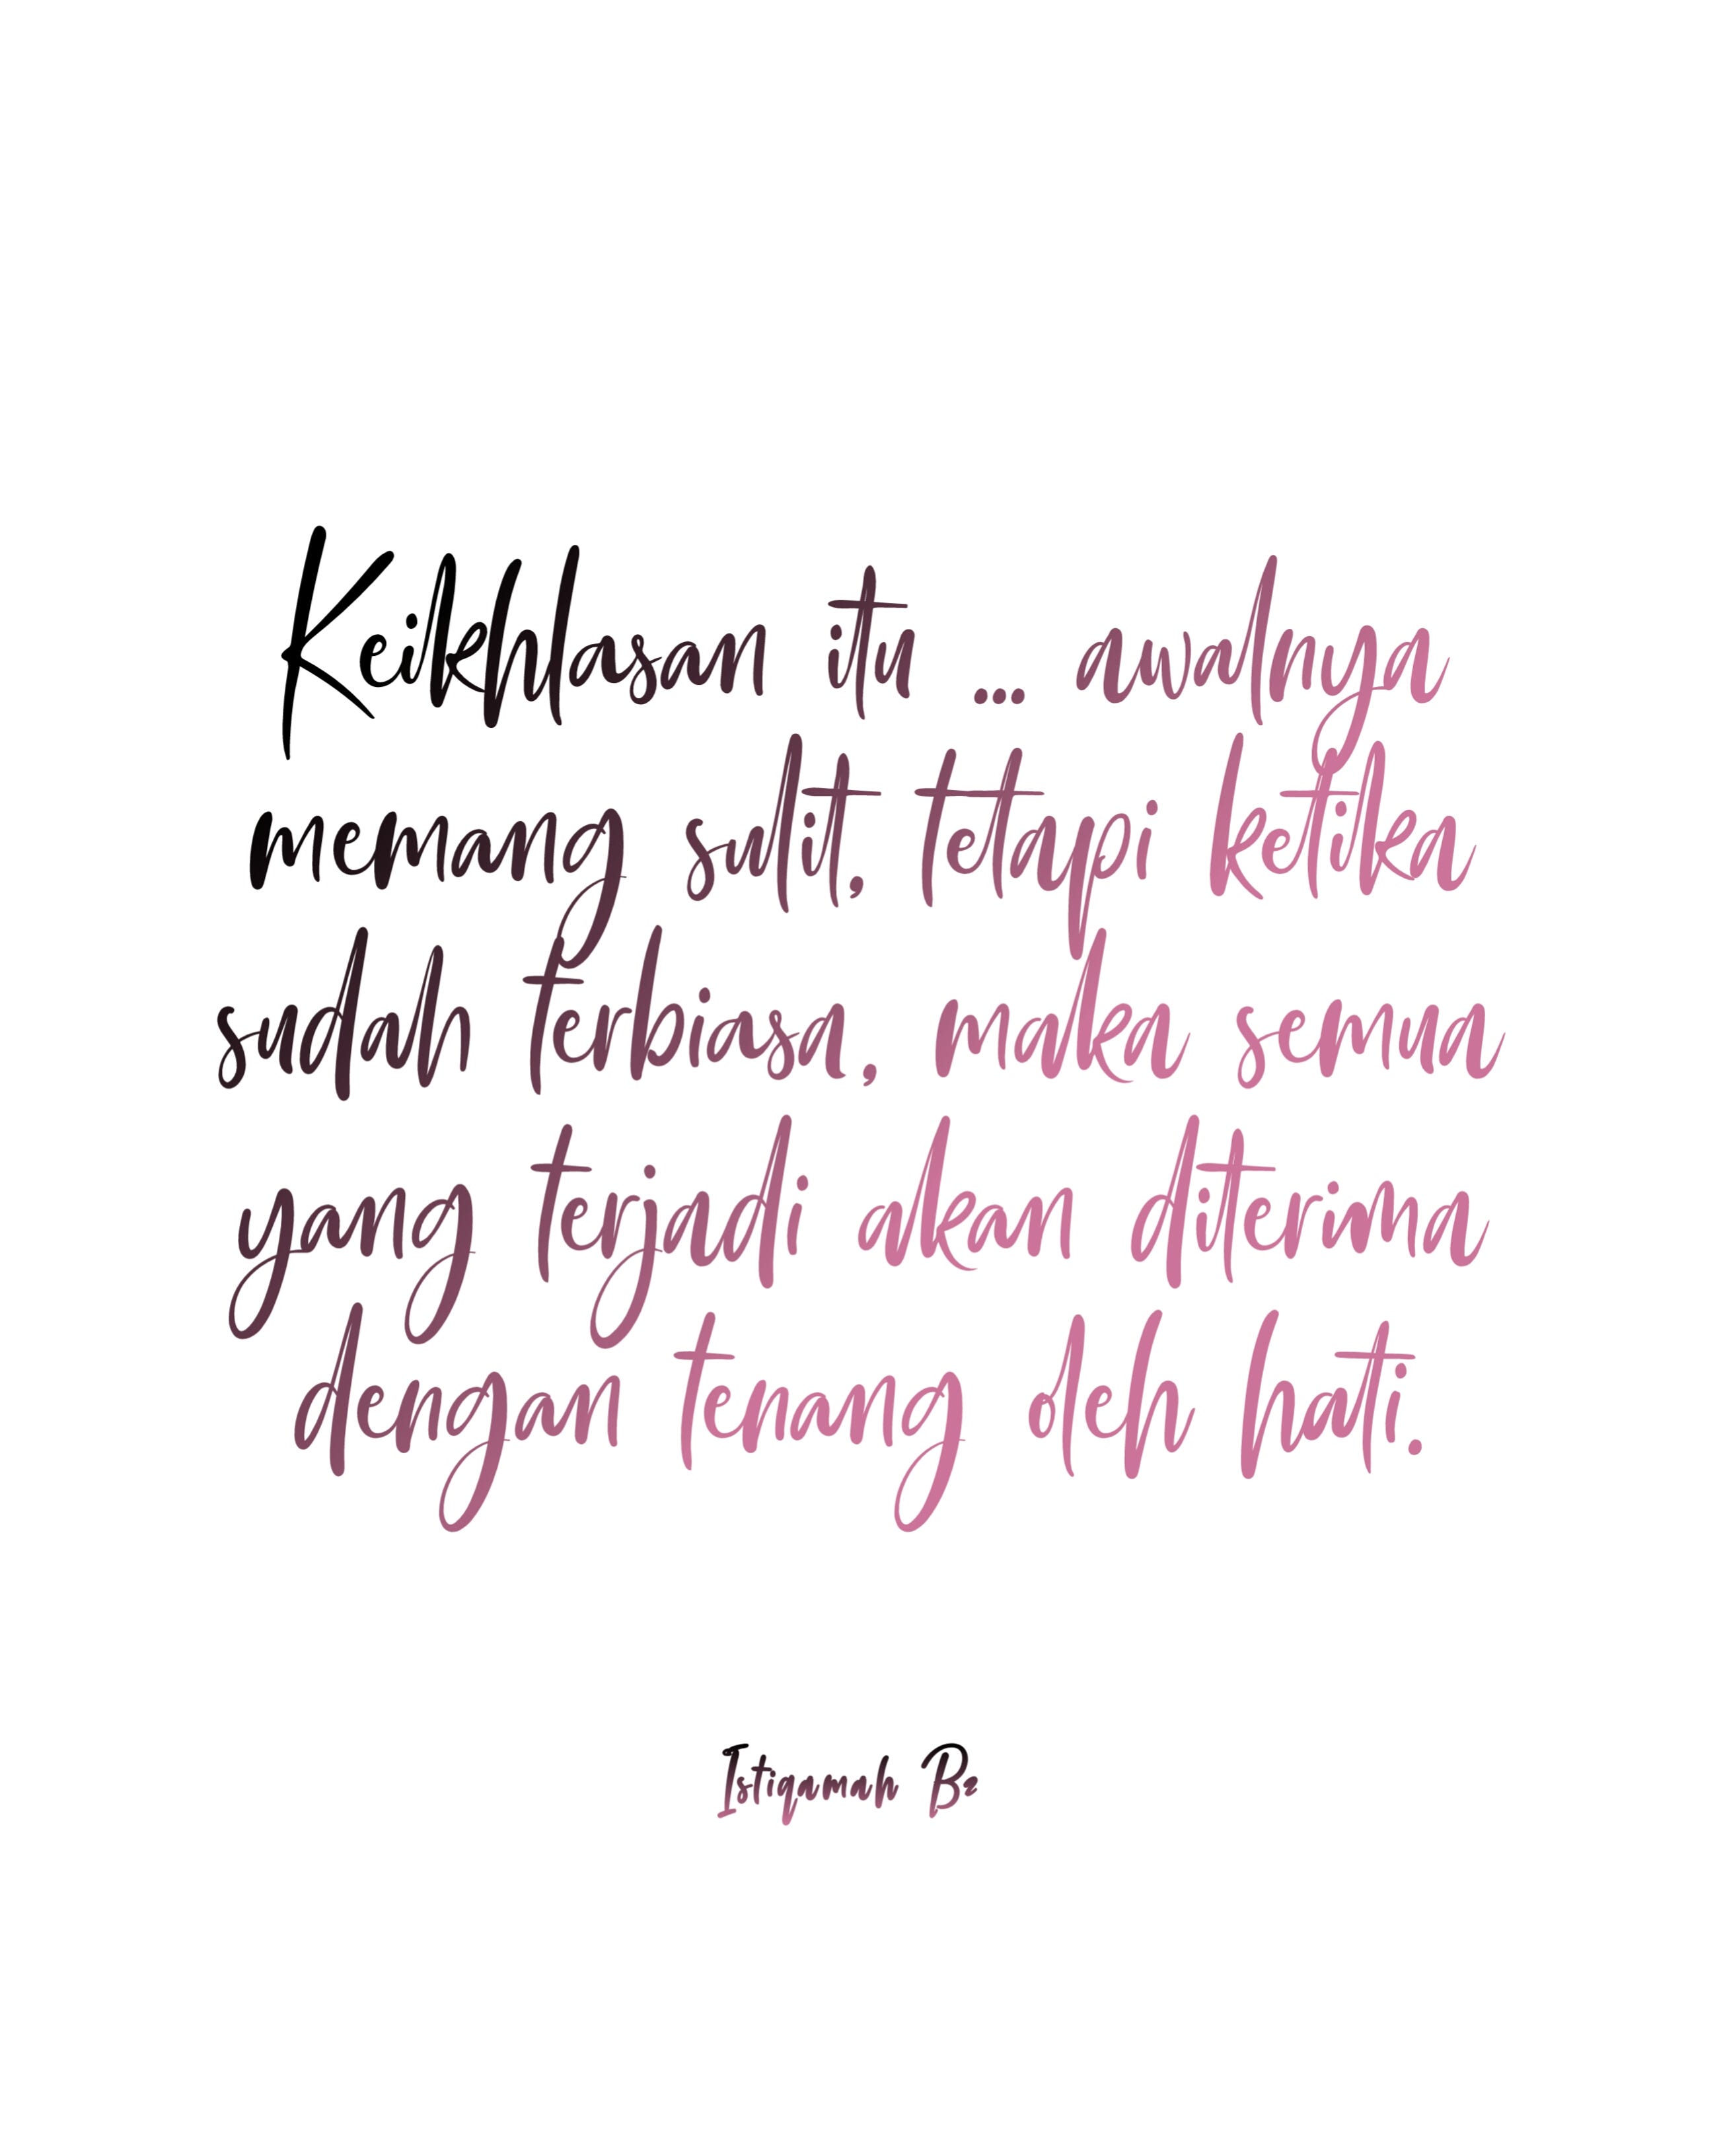 Keikhlasan itu ... awalnya
memang sulit, tetapi ketika
sudah terbiasa, maka semua
yang terjadi akan diterima
dengan tenang oleh hati.
Istiqamah Be